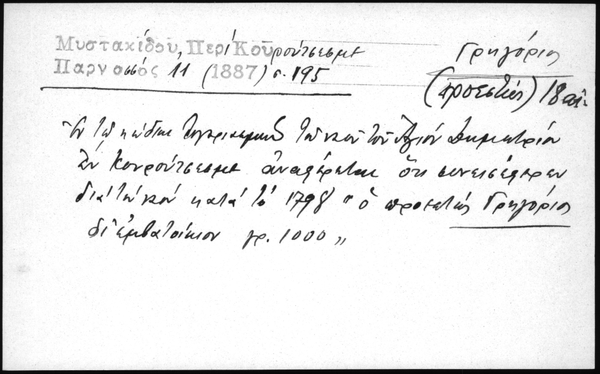 Μυστακίδου, Περί Κουρούτσεσμε
Παρνασσός 11 (1887) σ. 195
Γρηγόριος
(προεστώς) 18 αἰ.
Ἐν τῷ κώδικι τοῦ ναοῦ τοῦ Ἁγίου Δημητρίου
ἐν Κουρούτσεσμε ἀναφέρεται ὅτι συνεισέφερεν
διὰ τὸν ναόν κατὰ τὸ 1798 "ὁ προεστώς Γρηγόριος
δι' ἐμβατοίκιον γρ. 1000"